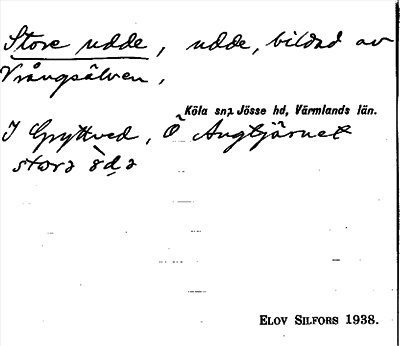 Store udde, udde, bildad av
Vrångsälven,
Köla sn, Jösse hd, Värmlands län.
I Gryttved, Ö Ängtjärnet
storə ùdə
ELOV SILFORS 1938.